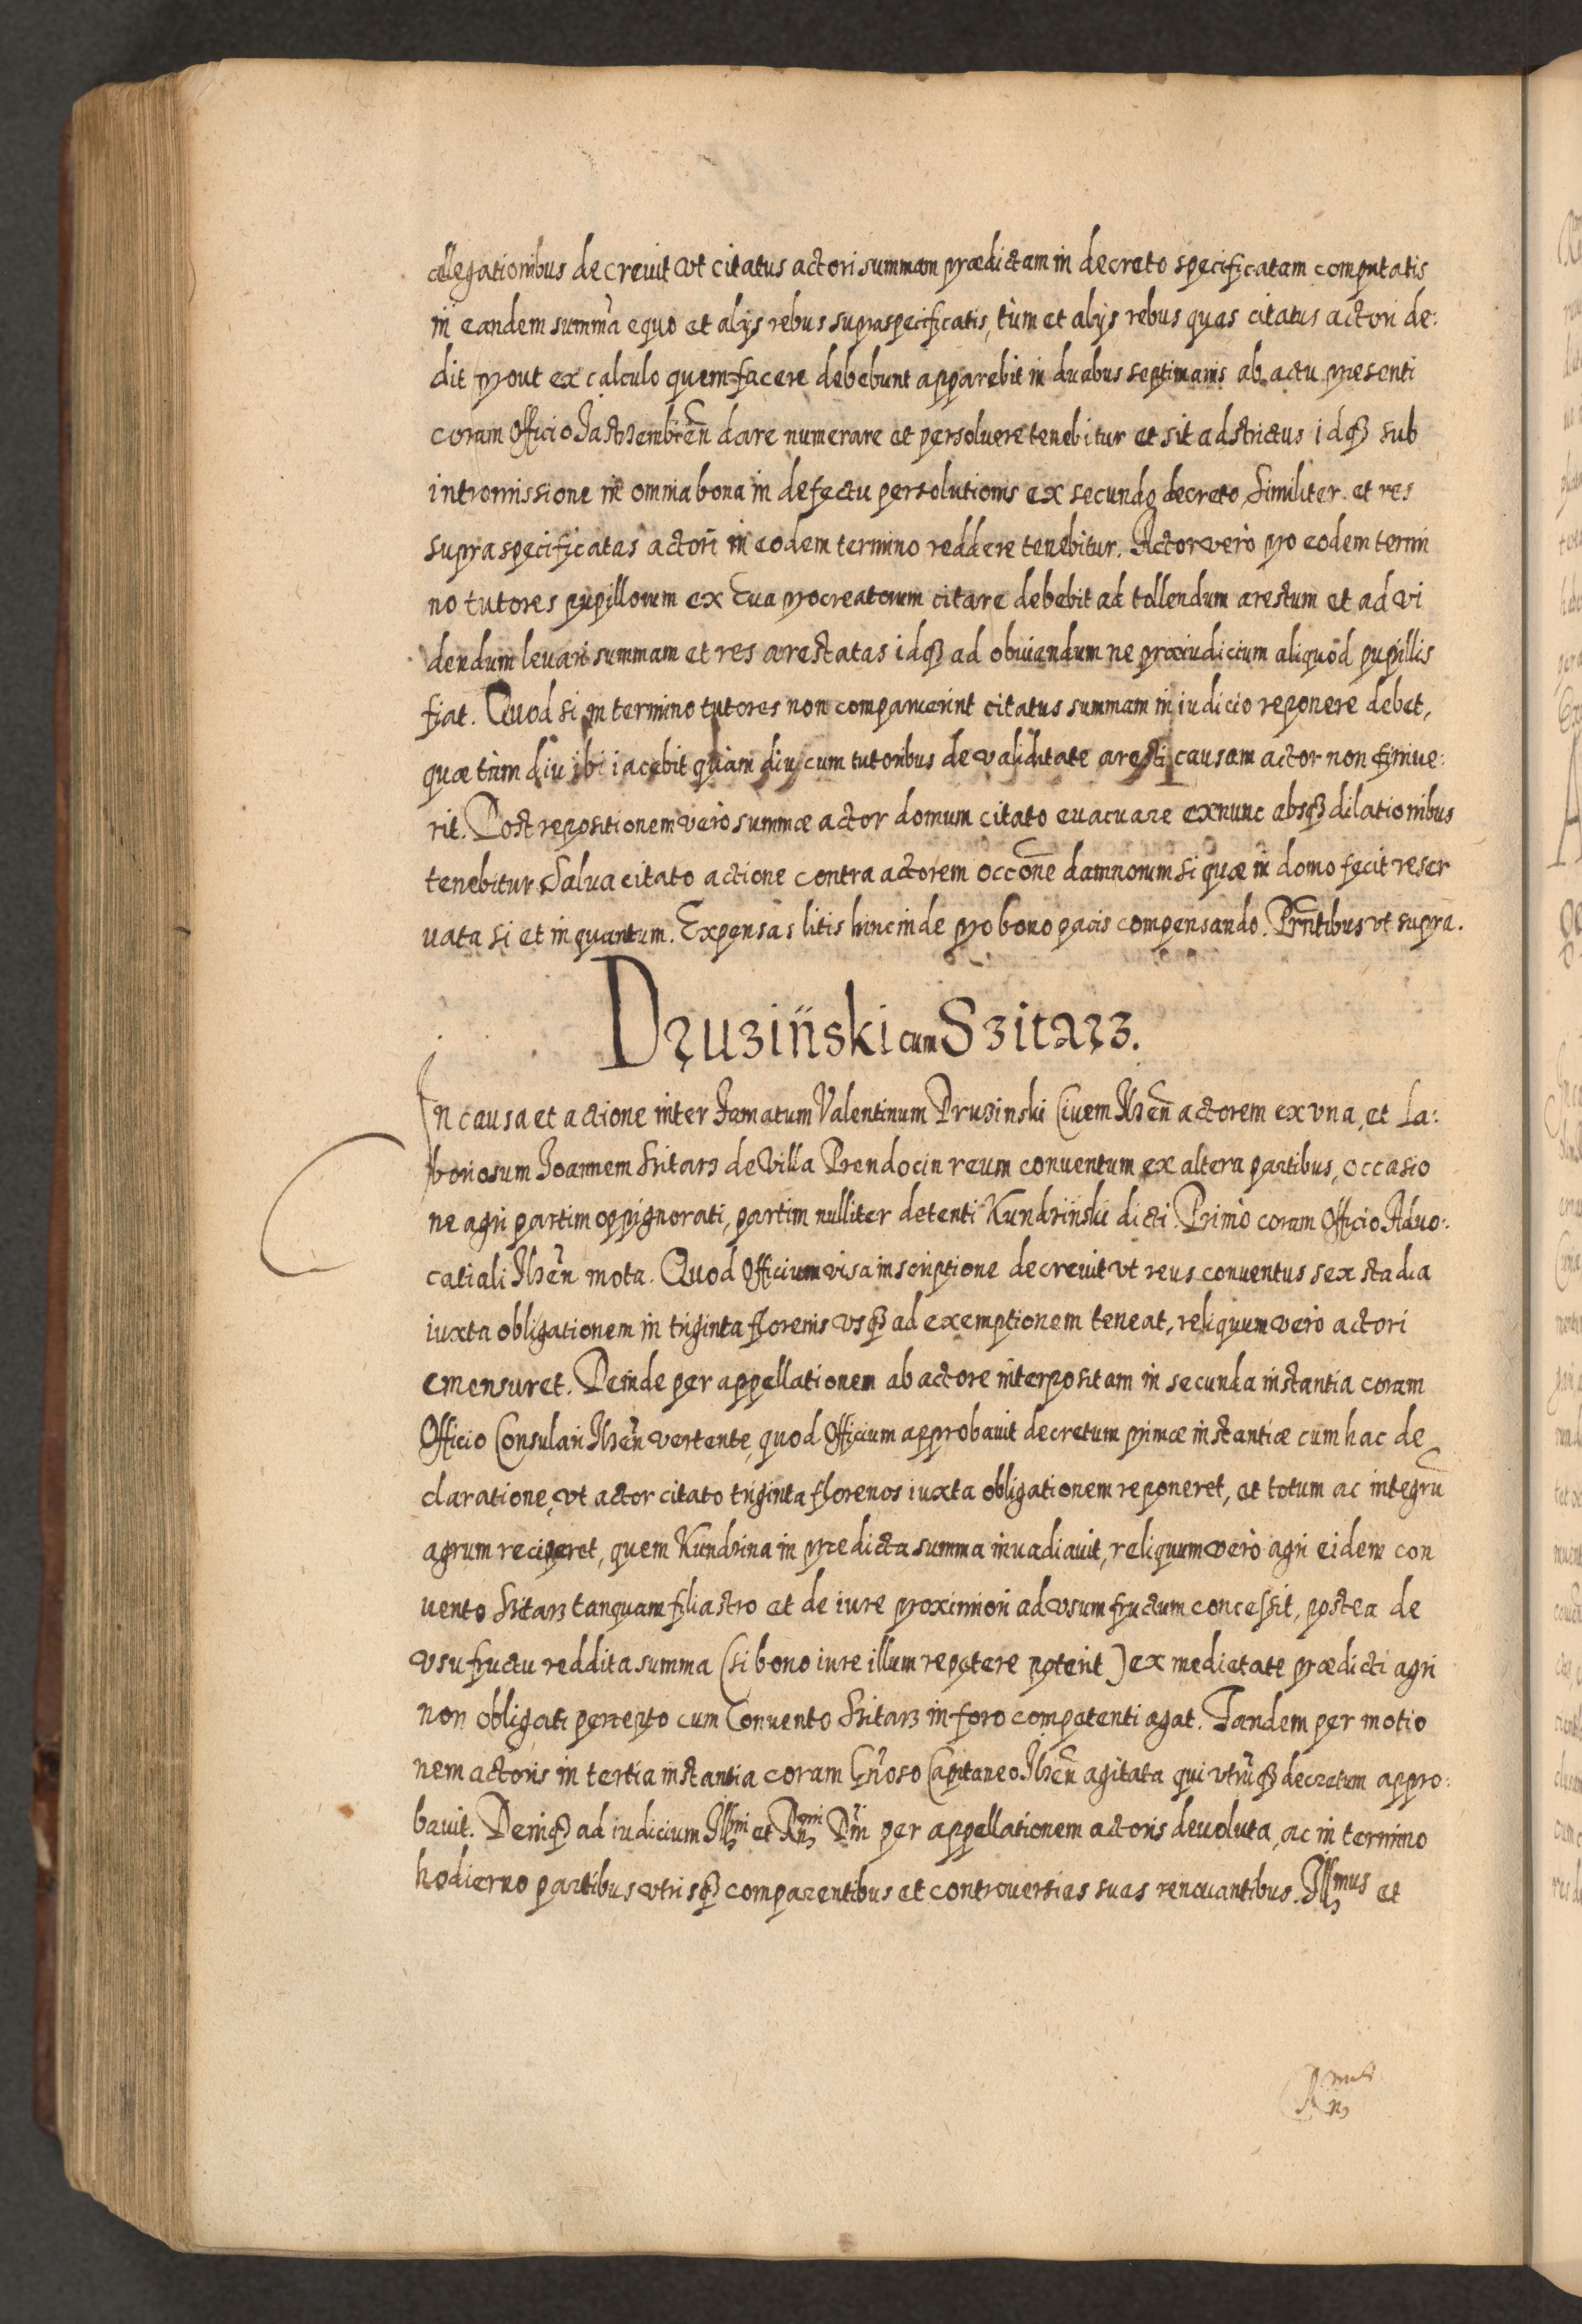 allegationibus decreuit vt citatus actori summam prædictam in decreto specificatam computatis
in eandem summã equo et alijs rebus supraspecificatis, tùm et alijs rebus quas citatus actori de:
dit prout ex calculo quem facere debebunt apparebit in duabus septimanis ab actu presenti
coram Officio Jastrzembien̄ dare numerare et persoluere tenebitur et sit adstrictus idq₃ sub
intromissione in omnia bona in defectu persolutionis ex secundo decreto, Similiter et res
supraspecificatas actori in eodem termino reddere tenebitur. Actor verò pro eodem termi
no tutores pupillorum ex Eua procreatorum citare debebit ad tollendum arestum et ad vi
dendum leuari summam et res arestatas idq₃ ad obuiandum ne præiudicium aliquod pupillis
fiat. Quod si in termino tutores non comparuerint citatus summam in iudicio reponere debet,
quæ tàm diu ibi iacebit quàm diu cum tutoribus de validitate aresti causam actor non finiue:
rit. Post repositionem verò summæ actor domum citato euacuare exnunc absq₃ dilationibus
tenebitur Salua citato actione contra actorem occõne damnorum si quæ in domo fecit reser
uata si et in quantum. Expensas litis hinc inde pro bono pacis compensando. Prn̄tibus vt supra.
Druziński cum Szitarz.
In causa et actione inter Famatum Valentinum Druzinski Ciuem Jlzen̄ actorem ex vna, et La:
boriosum Joannem Szitarz de Villa Prendocin reum conuentum ex altera partibus, occasio
ne agri partim oppignorati, partim nulliter detenti Kundziński dicti. Primò coram Officio Aduo:
catiali Jlzen̄ mota. Quod Officium visa inscriptione decreuit vt reus conuentus sex stadia
iuxta obligationem in triginta florenis vsq₃ ad exemptionem teneat, reliquum verò actori
emensuret. Deinde per appellationem ab actore interpositam in secunda instantia coram
Officio Consulari Jlzen̄ vertente, quod Officium approbauit decretum primæ instantiæ cum hac de
claratione, vt actor citato triginta florenos iuxta obligationem reponeret, et totum ac integrũ
agrum reciperet, quem Kundzina in predicta summa inuadiauit, reliquum verò agri eidem con
uento Szitarz tanquam filiastro et de iure proximiori ad vsum fructum concessit, postea de
vsu fructu reddita summa (si bono iure illum repetere poterit) ex medietate prædicti agri
non obligati percepto cum Conuento Szitarz in foro competenti agat. Tandem per motio
nem actoris in tertia instantia coram Gn̄oso Capitaneo Jlzen̄ agitata qui vtrũq₃ decretum appro:
bauit. Deniq₃ ad iudicium Jllmi et Rn̄mi Dn̄i per appellationem actoris deuoluta, ac in termino
hodierno partibus vtrisq₃ comparentibus et controuersias suas renouantibus. Jllmus et
Rn̄mus